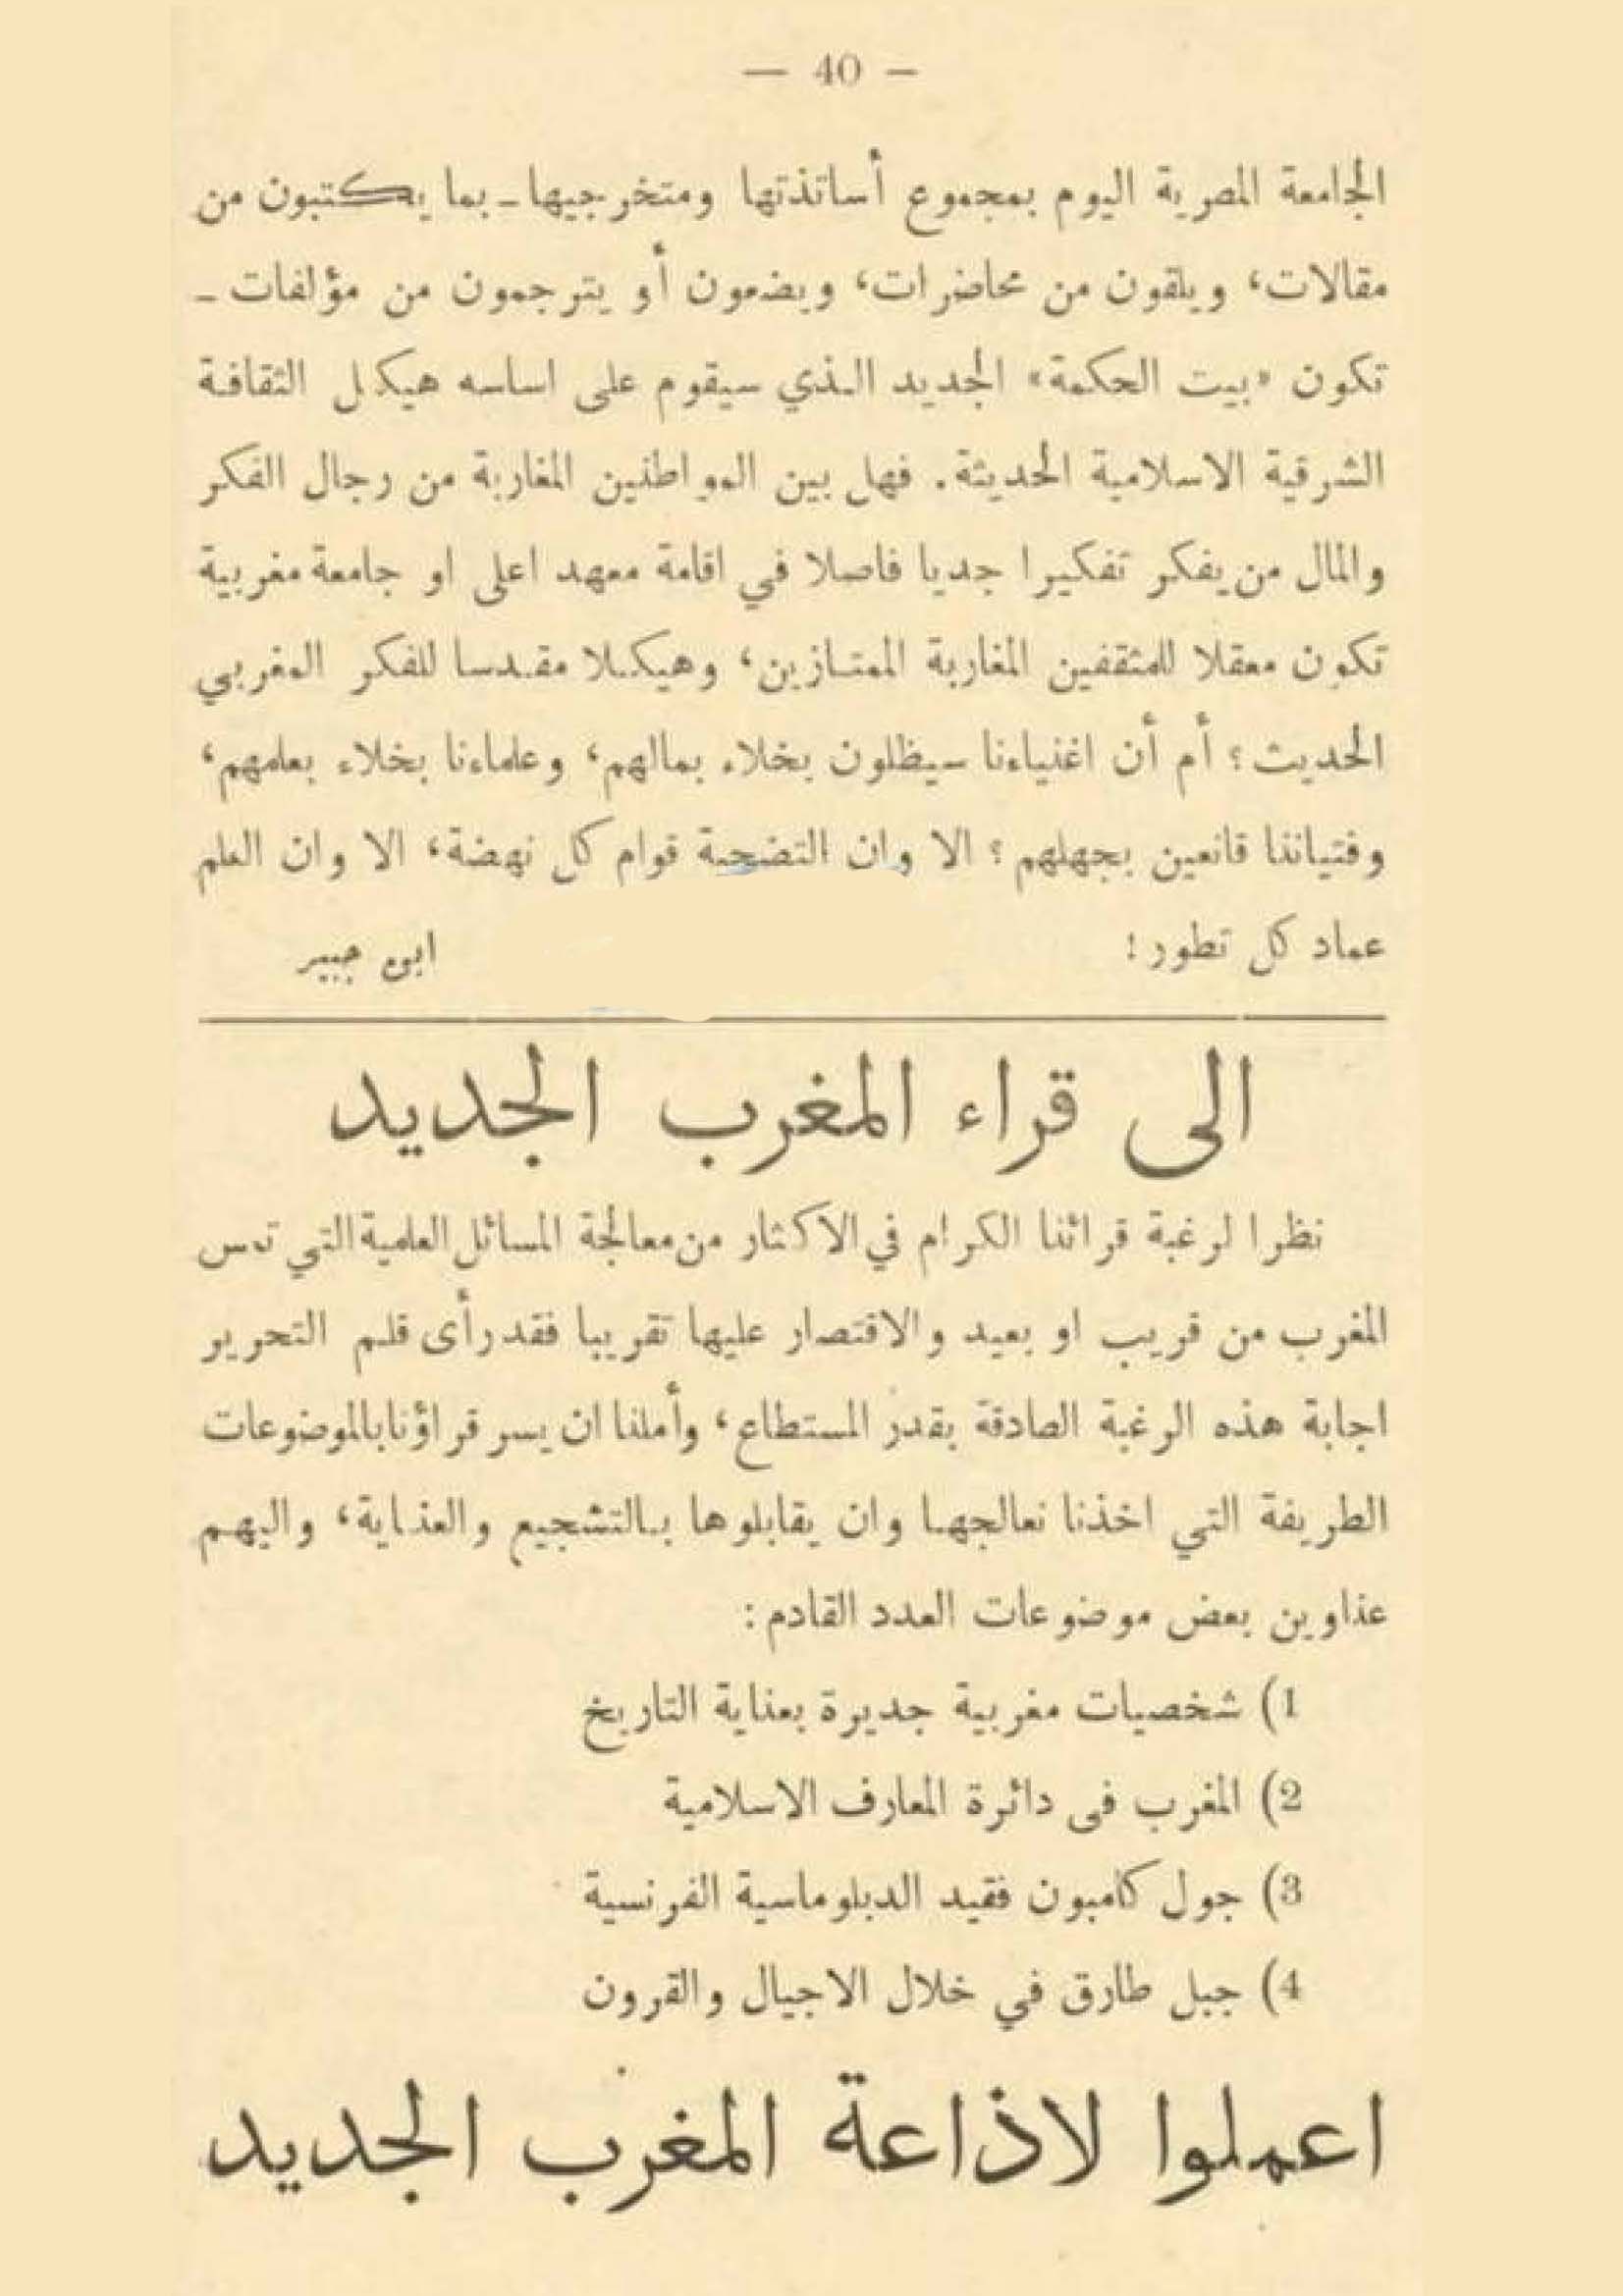 — 40 —
الجامعة المصرية اليوم بمجموع أساتذتها ومتخرجيها ـ بما يكتبون من
مقالات، ويلقون من محاضرات، ويضعون أو يترجمون من مؤلفات ـ
تكون «بيت الحكمة» الجديد الذي سيقوم على اساسه هيكل الثقافة
الشرقية الاسلامية الحديثة. فهل بين المواطنين المغاربة من رجال الفكر
والمال من يفكر تفكيرا جديا فاصلا في اقامة معهد اعلى او جامعة مغربية
تكون معقلا للمثقفين المغاربة الممتازين، وهيكلا مقدسا للفكر المغربي
الحديث؟ أم أن اغنياءنا سيظلون بخلاء بمالهم، وعلماءنا بخلاء بعلمهم،
وفتياننا قانعين بجهلهم؟ الا وان التضحية قوام كل نهضة، الا وان العلم
عماد كل تطور!
ابو جبير
الى قراء المغرب الجديد
نظرا لرغبة قرائنا الكرام في الاكثار من معالجة المسائل العلمية التي تمس
المغرب من قريب او بعيد والاقتصار عليها تقريبا فقد رأى قلم التحرير
اجابة هذه الرغبة الصادقة بقدر المستطاع، وأملنا ان يسر قراؤنا بالموضوعات
الطريفة التي اخذنا نعالجها وان يقابلوها بالتشجيع والعناية، واليهم
عناوين بعض موضوعات العدد القادم:
1) شخصيات مغربية جديرة بعناية التاريخ
2) المغرب فى دائرة المعارف الاسلامية
3) جول كامبون فقيد الدبلوماسية الفرنسية
4) جبل طارق في خلال الاجيال والقرون
اعملوا لاذاعة المغرب الجديد